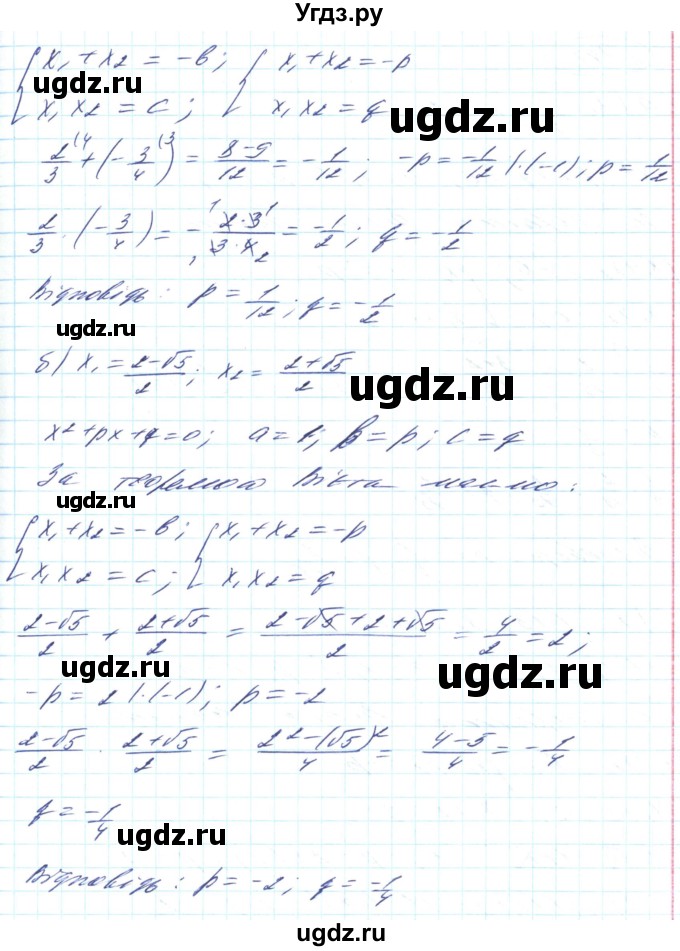 Угдз.ру
{ x₁+x₂ = -b; { x₁+x₂ = -p
{ x₁x₂ = c; { x₁x₂ = q
ugdz.ru
ugdz.ru
2/3⁽⁴ + (-3/4⁽³) = (8-9)/12 = -1/12; -p = -1/12 |·(-1); p = 1/12
2/3 · (-3/4) = - (2·3)/(3·4) = -1/2; q = -1/2
Відповідь: p = 1/12; q = -1/2
ugdz.ru
б) x₁ = (2-√5)/2; x₂ = (2+√5)/2
ugdz.ru
x²+px+q=0; a=1; b=p; c=q
За теоремою Вієта маємо:
ugdz.ru
{ x₁+x₂ = -b; { x₁+x₂ = -p
{ x₁x₂ = c; { x₁x₂ = q
ugdz.ru
(2-√5)/2 + (2+√5)/2 = (2-√5+2+√5)/2 = 4/2 = 2;
ugdz.ru
-p = 2 |·(-1); p = -2
ugdz.ru
(2-√5)/2 · (2+√5)/2 = (2²-(√5)²)/4 = (4-5)/4 = -1/4
q = -1/4
ugdz.ru
ugdz.ru
Відповідь: p = -2; q = -1/4